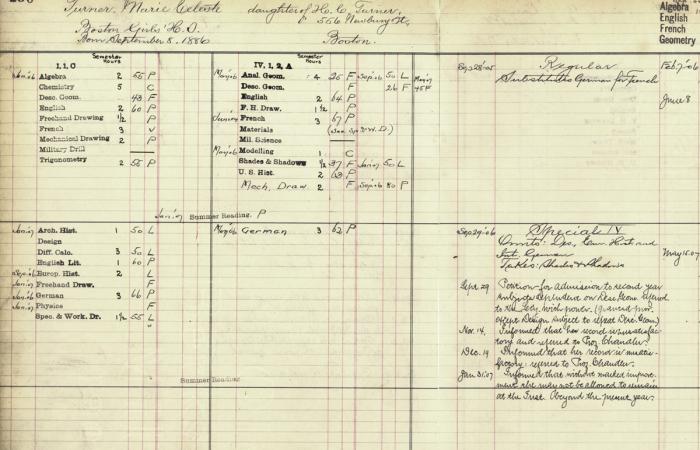 Turner, Marie Celeste daughter of H. C. Turner,
556 Newbury St.,
Boston Girls' H.S. Boston.
Born September 8, 1886
Algebra
English
French
Geometry
I, 1, C
Semester Hours
Algebra 2 55 P
Chemistry 5 C
Desc. Geom. 43 F
English 2 60 P
Freehand Drawing 1½ P
French 3 V
Mechanical Drawing 2 P
Military Drill
Trigonometry 2 55 P
IV, 1, 2, A
Semester Hours
May 06 Anal. Geom. 4 25 F Sep 06 50 L
Desc. Geom. F 26 F
English 2 64 P
F. H. Draw. 1½ P
French 3 67 P
Materials
Mil. Science
May 06 Modelling 1 C
Shades & Shadows ½ 37 F Jan 07 50 L
U. S. Hist. 2 63 P
Mech. Draw. 2 F Sep 06 80 P
Jan. 07 Summer Reading. P
Sep 28 05 Regular Feb 7 06
Substitutes German for French
June 8
Jan 07 Arch. Hist. 1 50 L
Design
Diff. Calc. 3 50 L
English Lit. 1 60 P
Europ. Hist. 2 L
Freehand Draw. F
German 3 66 P
Physics F
Spec. & Work. Dr. 1½ 55 L
May 06 German 3 62 P
Summer Reading
Sep 29 06 Special IV
Omits: and
Int. German May 15 07
Takes: Shades & Shadows
Sept. 29 Petition for admission to second year
subjects dependent on Desc. Geom. referred
to the with power.
except Design subject to repeat Desc. Geom.)
Nov. 14. Informed that her record is unsatisfac-
tory and referred to Prof. Chandler.
Dec. 19 Informed that her record is unsatis-
factory: referred to Prof. Chandler.
Jan 31 07 Informed that without marked improve-
ment she may not be allowed to remain
at the Inst. beyond the present year.